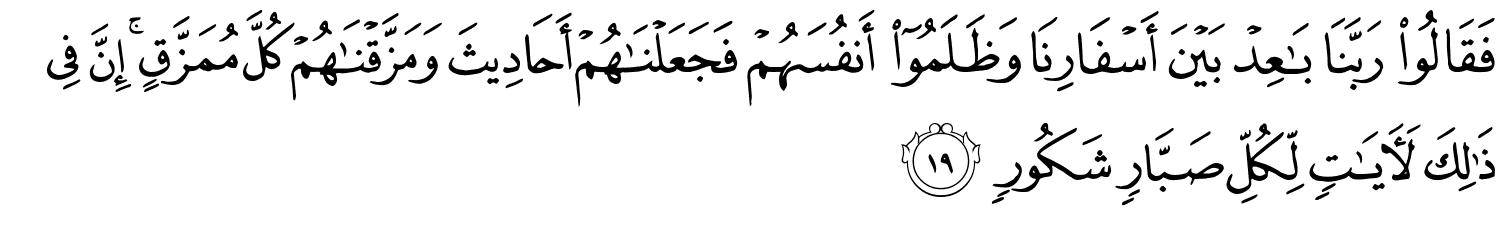 فَقَالُوا۟ رَبَّنَا بَـٰعِدْ بَيْنَ أَسْفَارِنَا وَظَلَمُوٓا۟ أَنفُسَهُمْ فَجَعَلْنَـٰهُمْ أَحَادِيثَ وَمَزَّقْنَـٰهُمْ كُلَّ مُمَزَّقٍ ۚ إِنَّ فِى
ذَٰلِكَ لَـَٔايَـٰتٍ لِّكُلِّ صَبَّارٍ شَكُورٍ ١٩